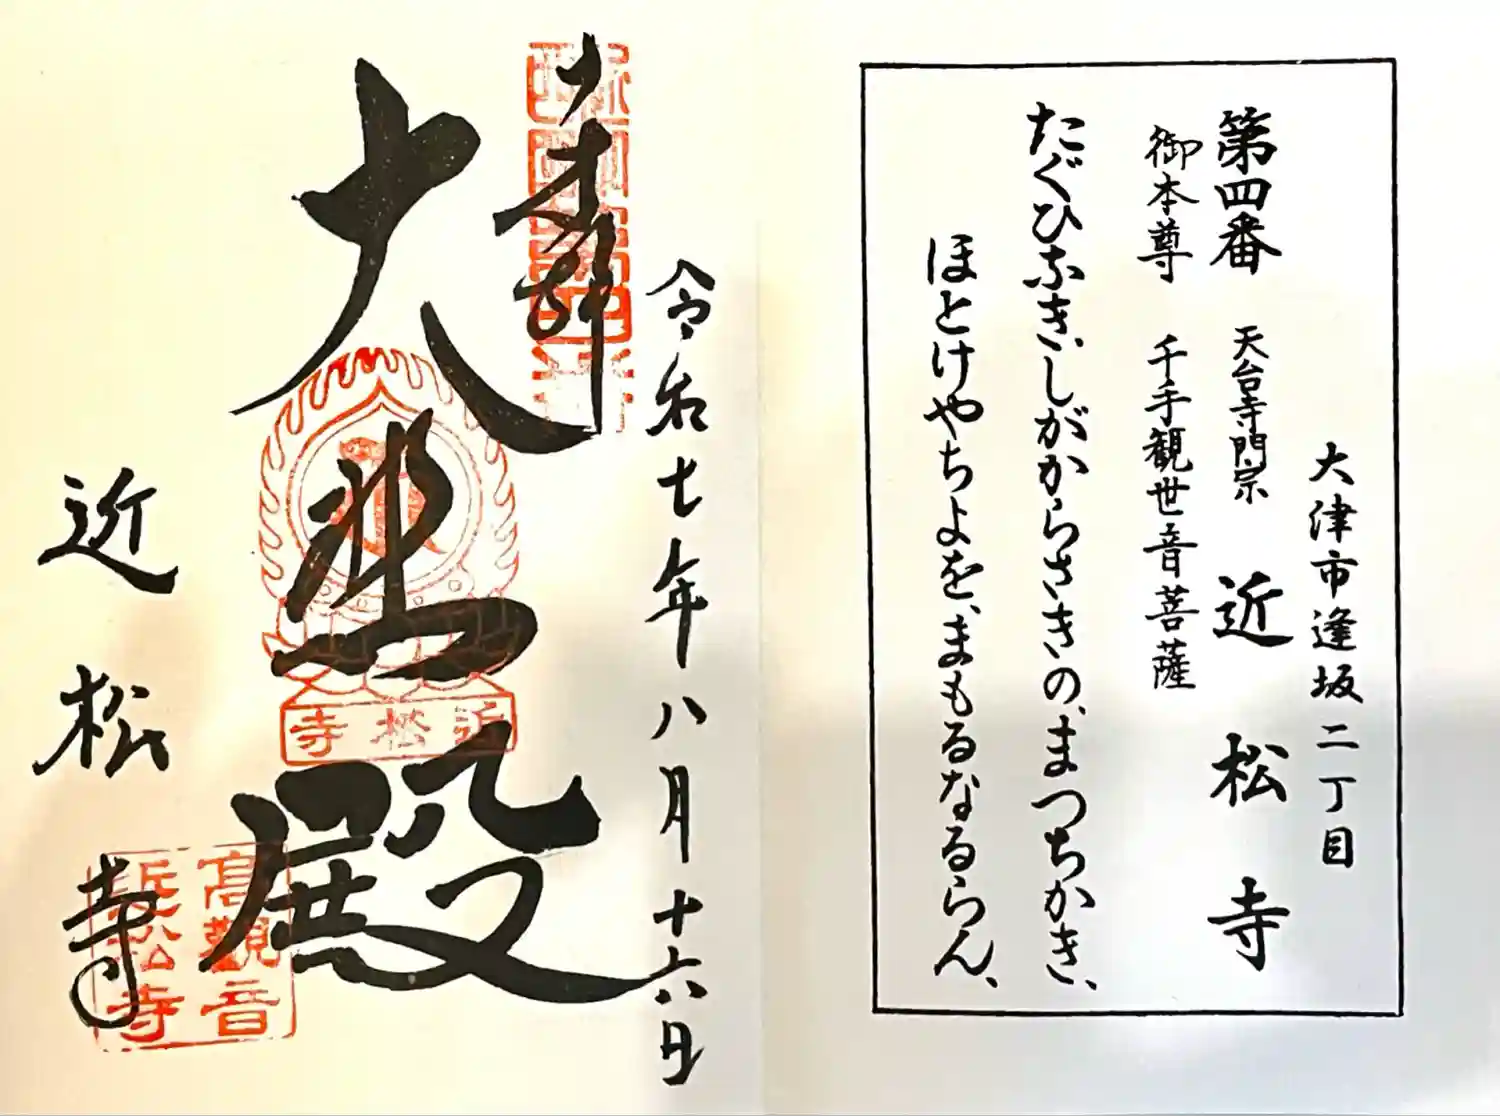 大津市逢坂二丁目
第四番 天台寺門宗 近松寺
御本尊 千手観世音菩薩
たぐひなき、しがからさきの、まつちかき、
ほとけやちよを、まもるなるらん、
令和七年八月十六日
奉拝
大悲殿
近松寺
近松寺
高観音
近松寺